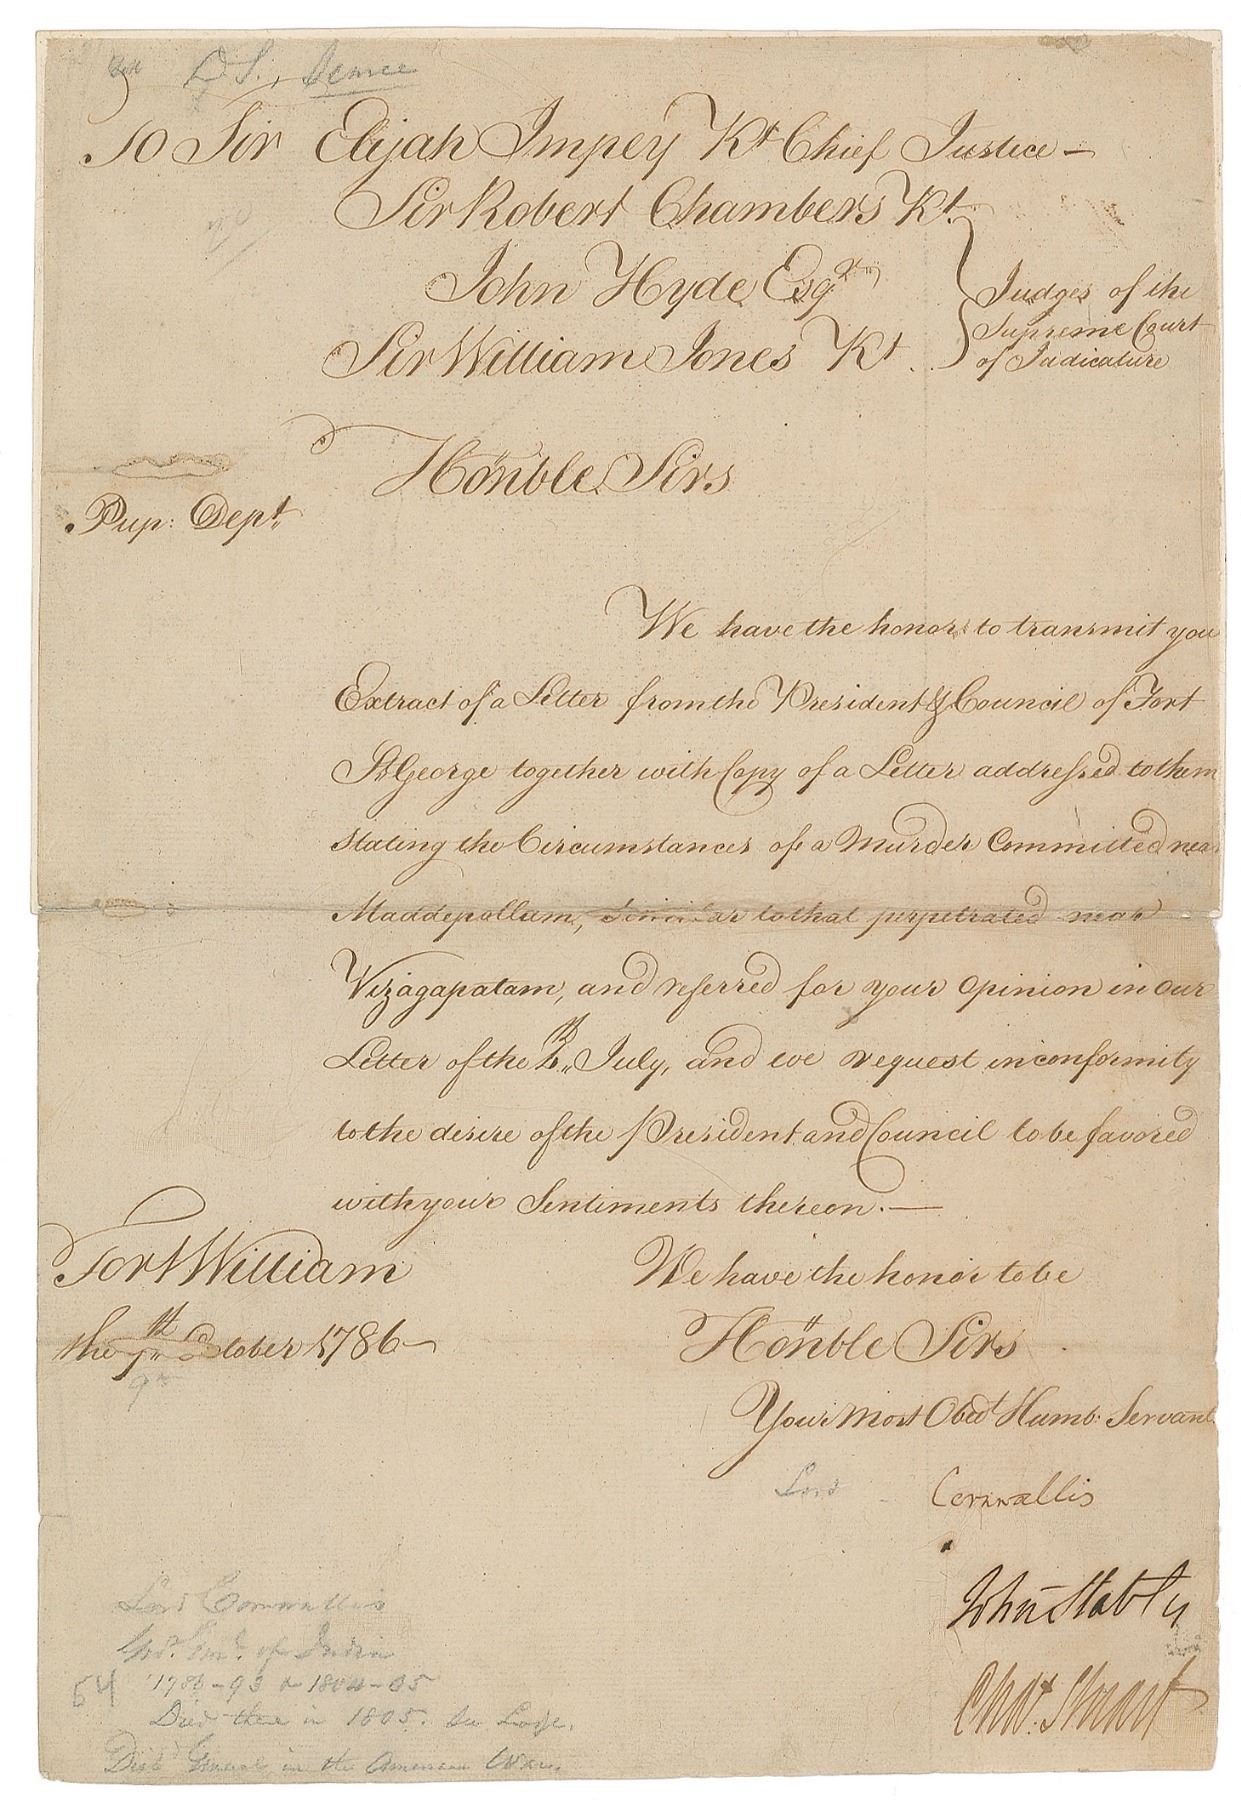 D S.,
To Sir Elijah Impey Kt Chief Justice —
Sir Robert Chambers Kt.
John Hyde Esqr
Sir William Jones Kt.
Judges of the
Supreme Court
of Judicature
Honble Sirs
Pup: Dept
We have the honor to transmit you
Extract of a Letter from the President & Council of Fort
St George together with Copy of a Letter addressed to them
stating the Circumstances of a Murder Committed near
Maddepollam, similar to that perpetrated near
Vizagapatam, and referred for your Opinion in our
Letter of the July, and we request in conformity
to the desire of the President and Council to be favored
with your Sentiments thereon. —
Fort William
the October 1786 —
We have the honor to be
Honble Sirs
Your most Obedt Humb: Servant
Lord
Cornwallis
John Stables
Chas. Stuart
Lord Cornwallis
of India
64
1786-93 & 1804-05
Died there in 1805.
Dist General in the American War.